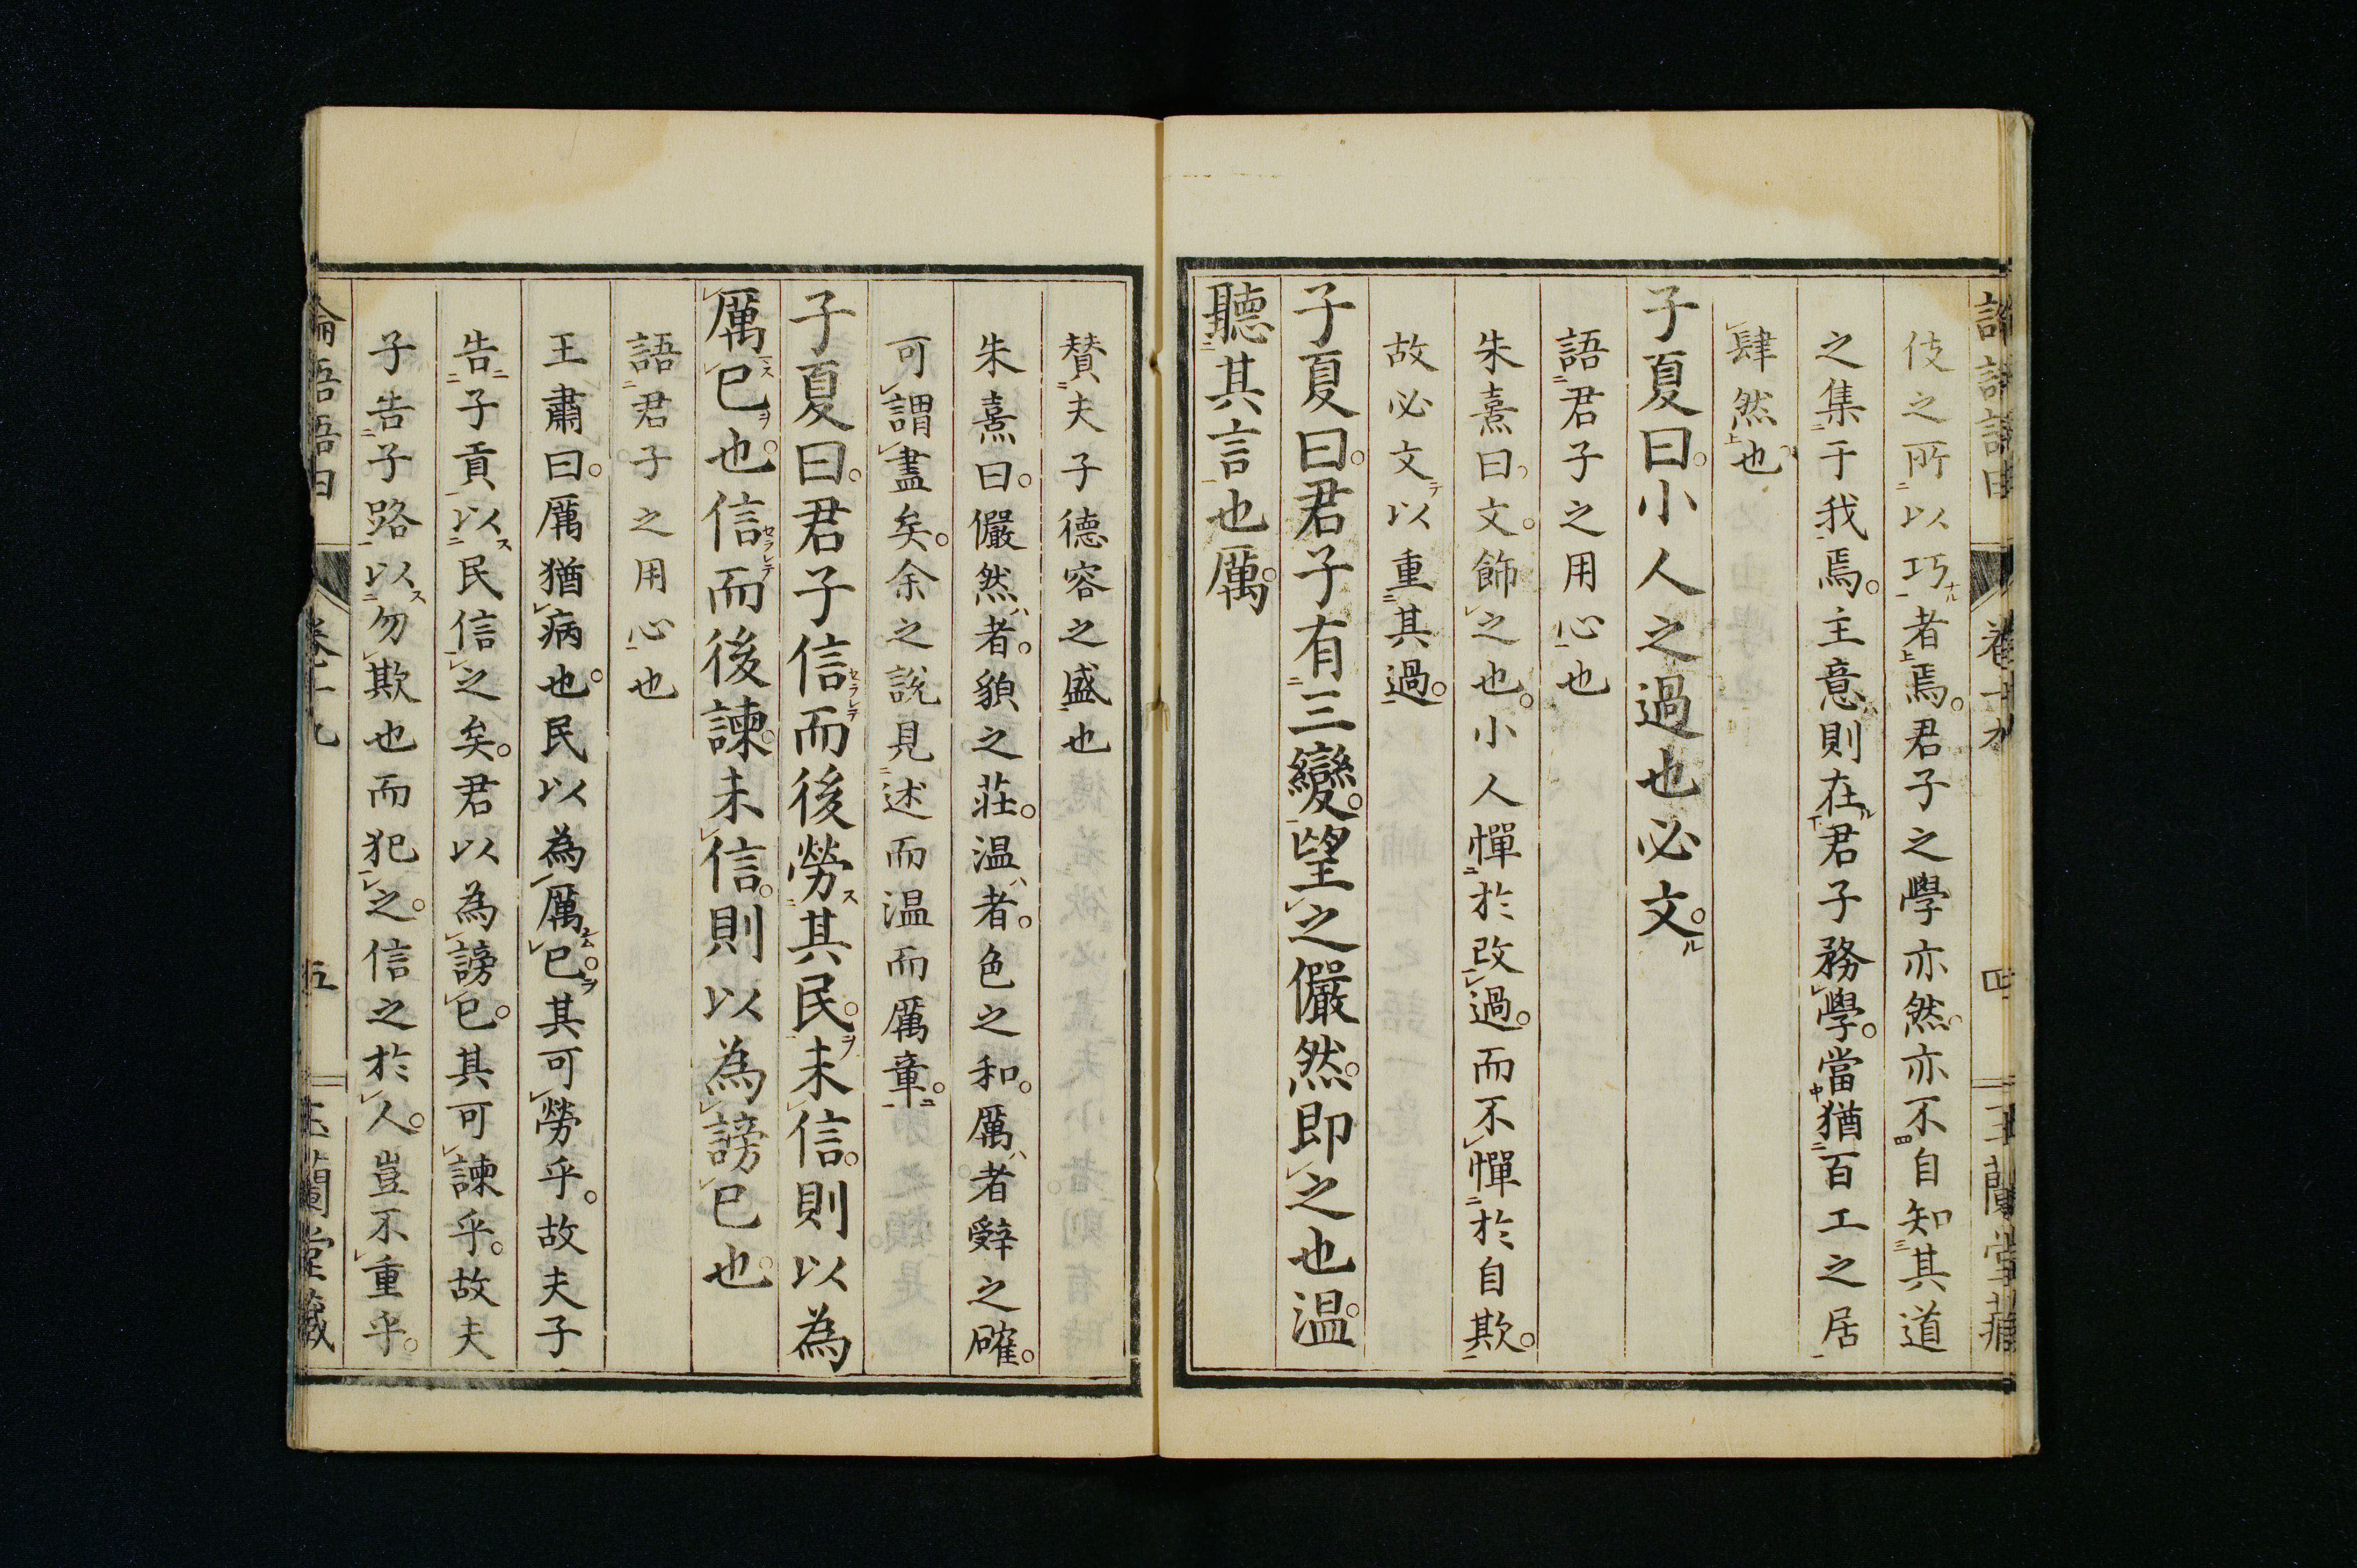 伎之所以巧者焉。君子之學亦然。亦不自知其道
之集于我焉。主意則在君子務學。當猶百工之居
肆然也
子夏曰。小人之過也必文。
語君子之用心也
朱熹曰。文。飾之也。小人憚於改過。而不憚於自欺。
故必文以重其過。
子夏曰。君子有三變。望之儼然。即之也温。
聽其言也厲。
贊夫子德容之盛也
朱熹曰。儼然者。貌之莊。温者。色之和。厲者辤之確。
可謂盡矣。余之說見述而温而厲章。
子夏曰。君子信而後勞其民。未信。則以為
厲已也。信而後諫。未信。則以為謗已也。
語君子之用心也
王肅曰。厲猶病也。民以為厲已。其可勞乎。故夫子
告子貢以民信之矣。君以為謗已。其可諫乎。故夫
子告子路以勿欺也而犯之。信之於人。豈不重乎。
論語語由 卷十九 五 玉蘭堂藏